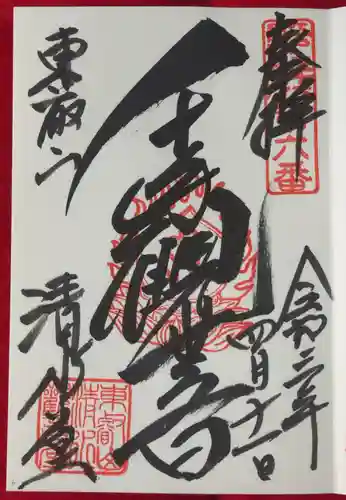 奉拝
六番
令和三年
四月十一日
千手観世音
東叡山
清水堂
東叡山
清水